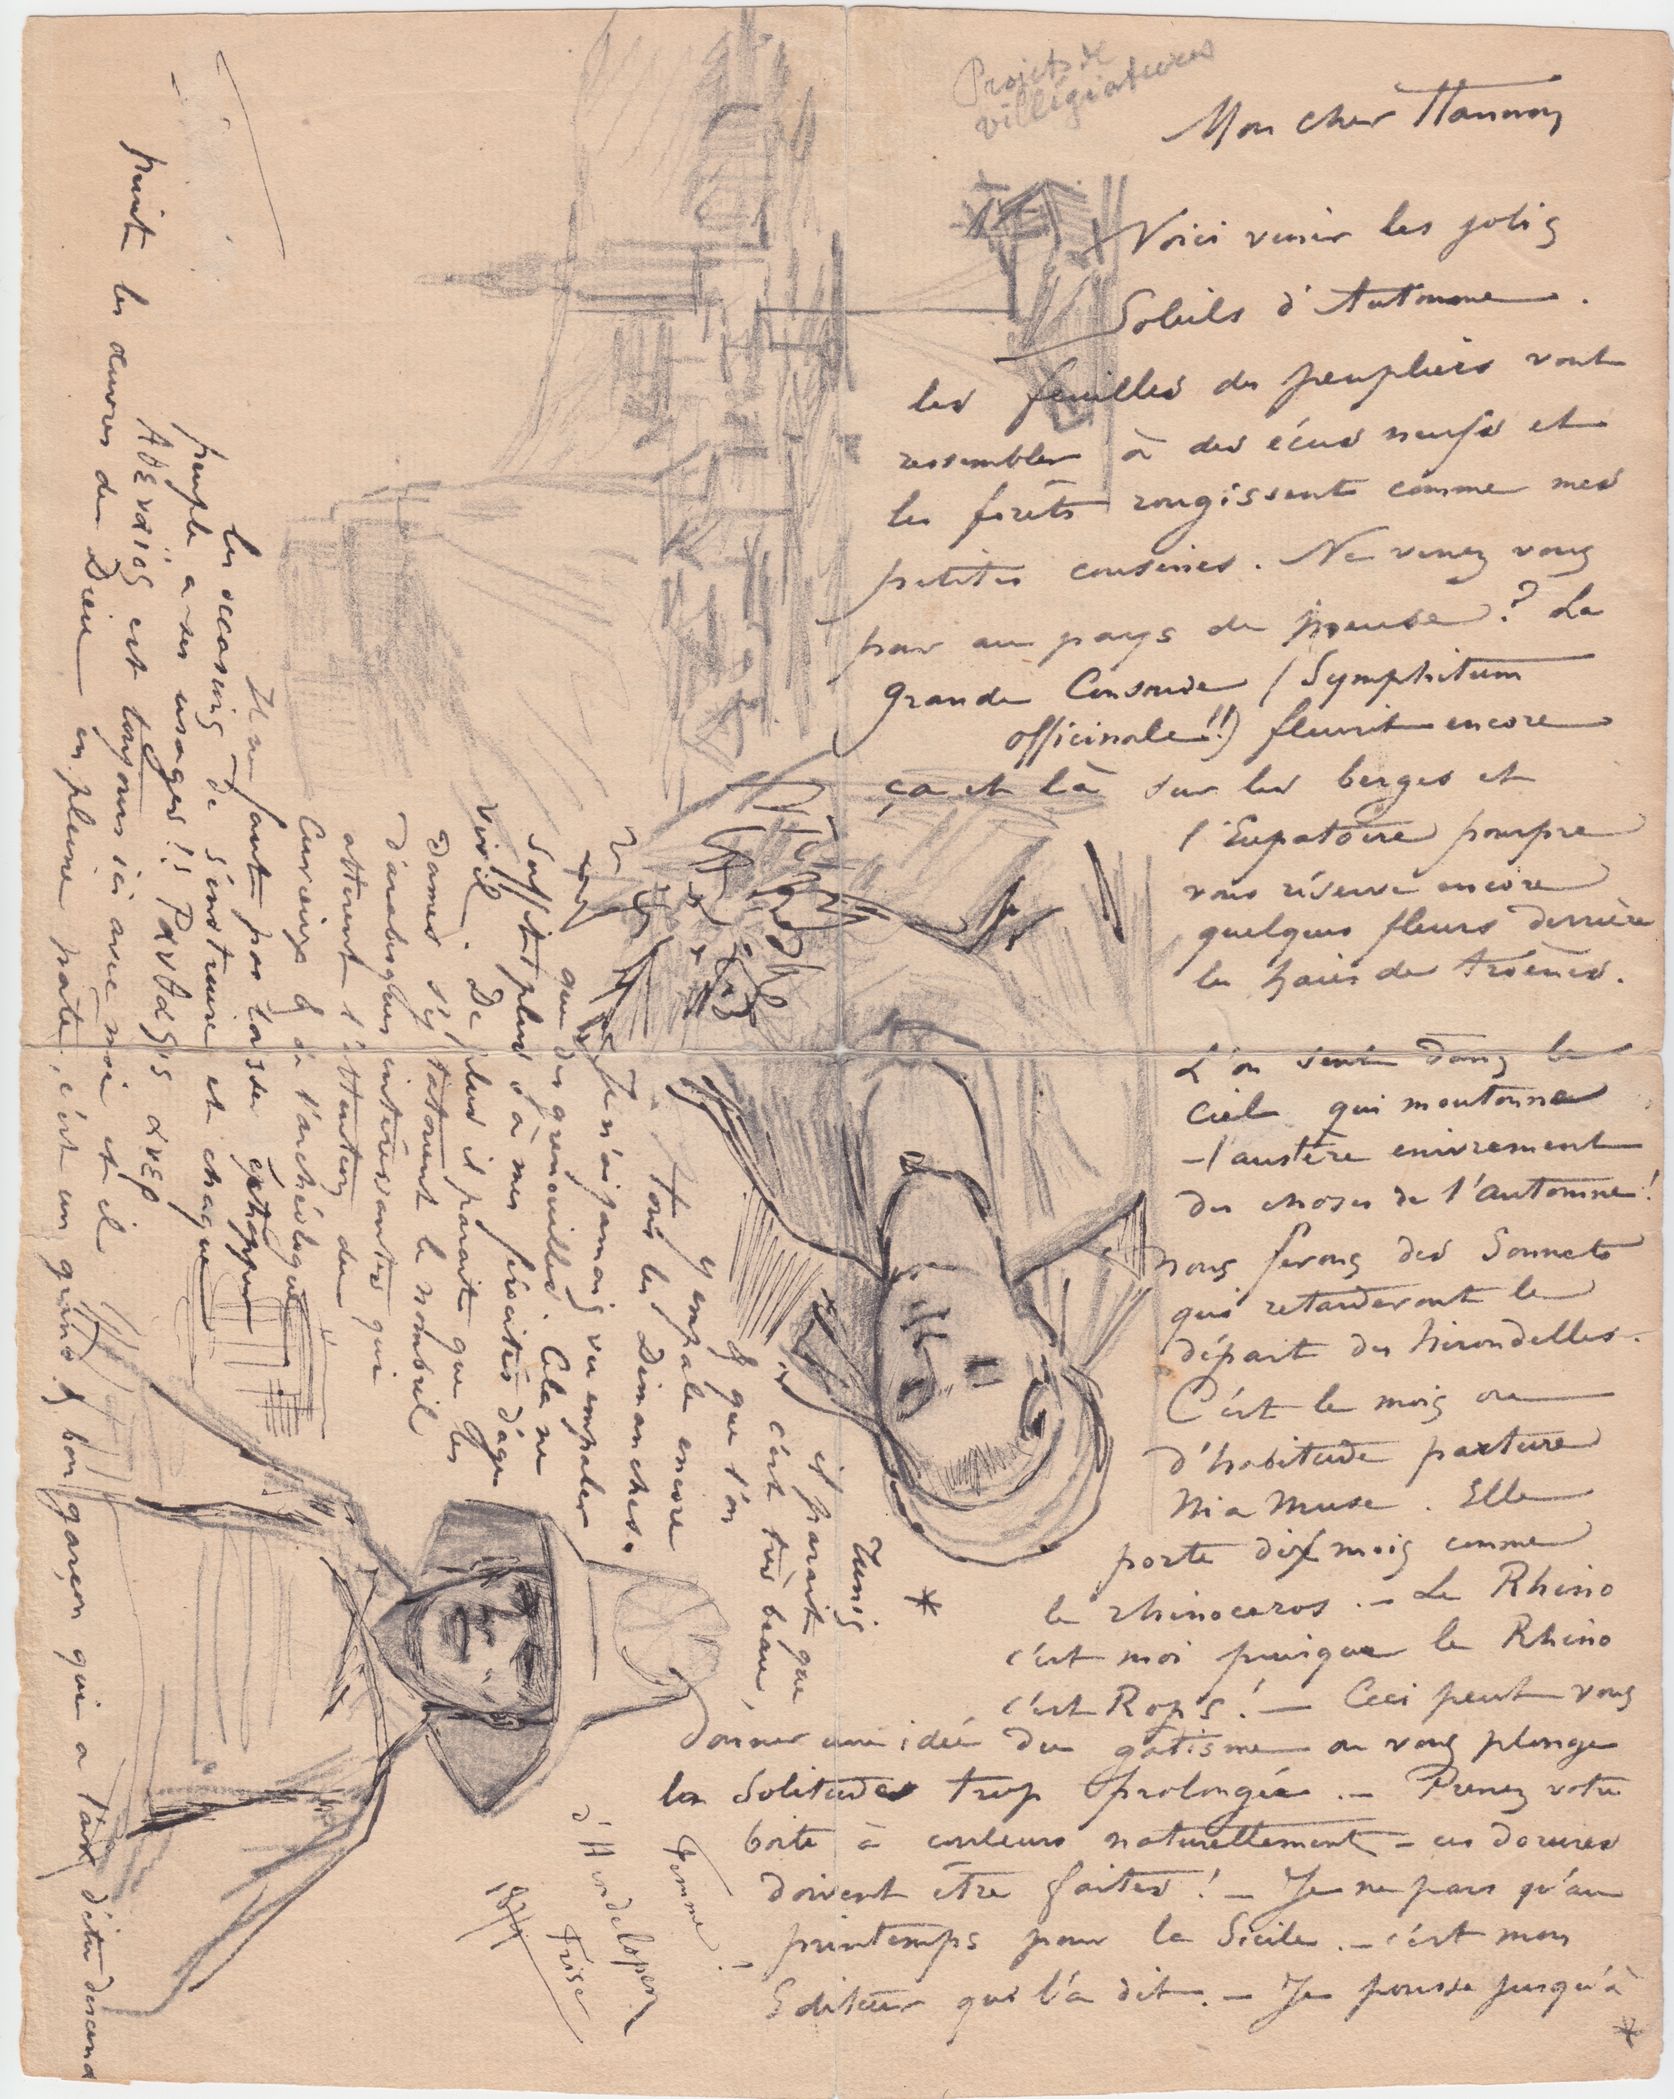 Projets de
villégiatures
Mon cher Hannon
Voici venir les jolis
Soleils d'Automne.
les feuilles des peupliers vont
ressembler à des écus neufs et
les forêts rougissent comme mes
petites cousines. Ne venez vous
pas au pays de Meuse? La
Grande Consoude (Symphitum
officinale!!) fleurit encore
ça et là sur les berges et
l'Eupatoire pourpre
vous réserve encore
quelques fleurs derrière
les haies de troënes.
L'on sent dans le
Ciel qui moutonne
l'austère enivrement
des choses de l'automne!
nous ferons des Sonnets
qui retarderont le
départ des hirondelles.
C'est le mois où
d'habitude parture
Ma Muse. Elle
porte dix mois comme
le rhinoceros. — Le Rhino
c'est moi puisque le Rhino
c'est Rops! — Ceci peut vous
donner une idée du gâtisme où vous plonge
la Solitude trop prolongée. — Prenez votre
boîte à couleurs naturellement — ces dorures
doivent être faites! — Je ne pars qu'au
printemps pour la Sicile. — c'est mon
Editeur qui l'a dit. — Je pousse jusqu'à
*
*
Tunis
il parait que
c'est très beau,
& que l'on
y empale encore
tous les Dimanches.
Je n'ai jamais vu empaler
que des grenouilles. Cela ne
suffit plus à mes férocités d'âge
viril. De plus il parait que les
Dames s'y tatouent le nombril
d'arabesques intéressantes qui
attirent l'attention du
Curieux & de l'archéologue
Il ne faut pas laisser échapper
les occasions de s'instruire et chaque
peuple a ses usages!!
est toujours ici avec moi et il
peint les œuvres de Dieu en pleine pâte, c'est un gentil & bon garçon qui a l'air d'être descend
Femme!
d'Hindelopen
Frise